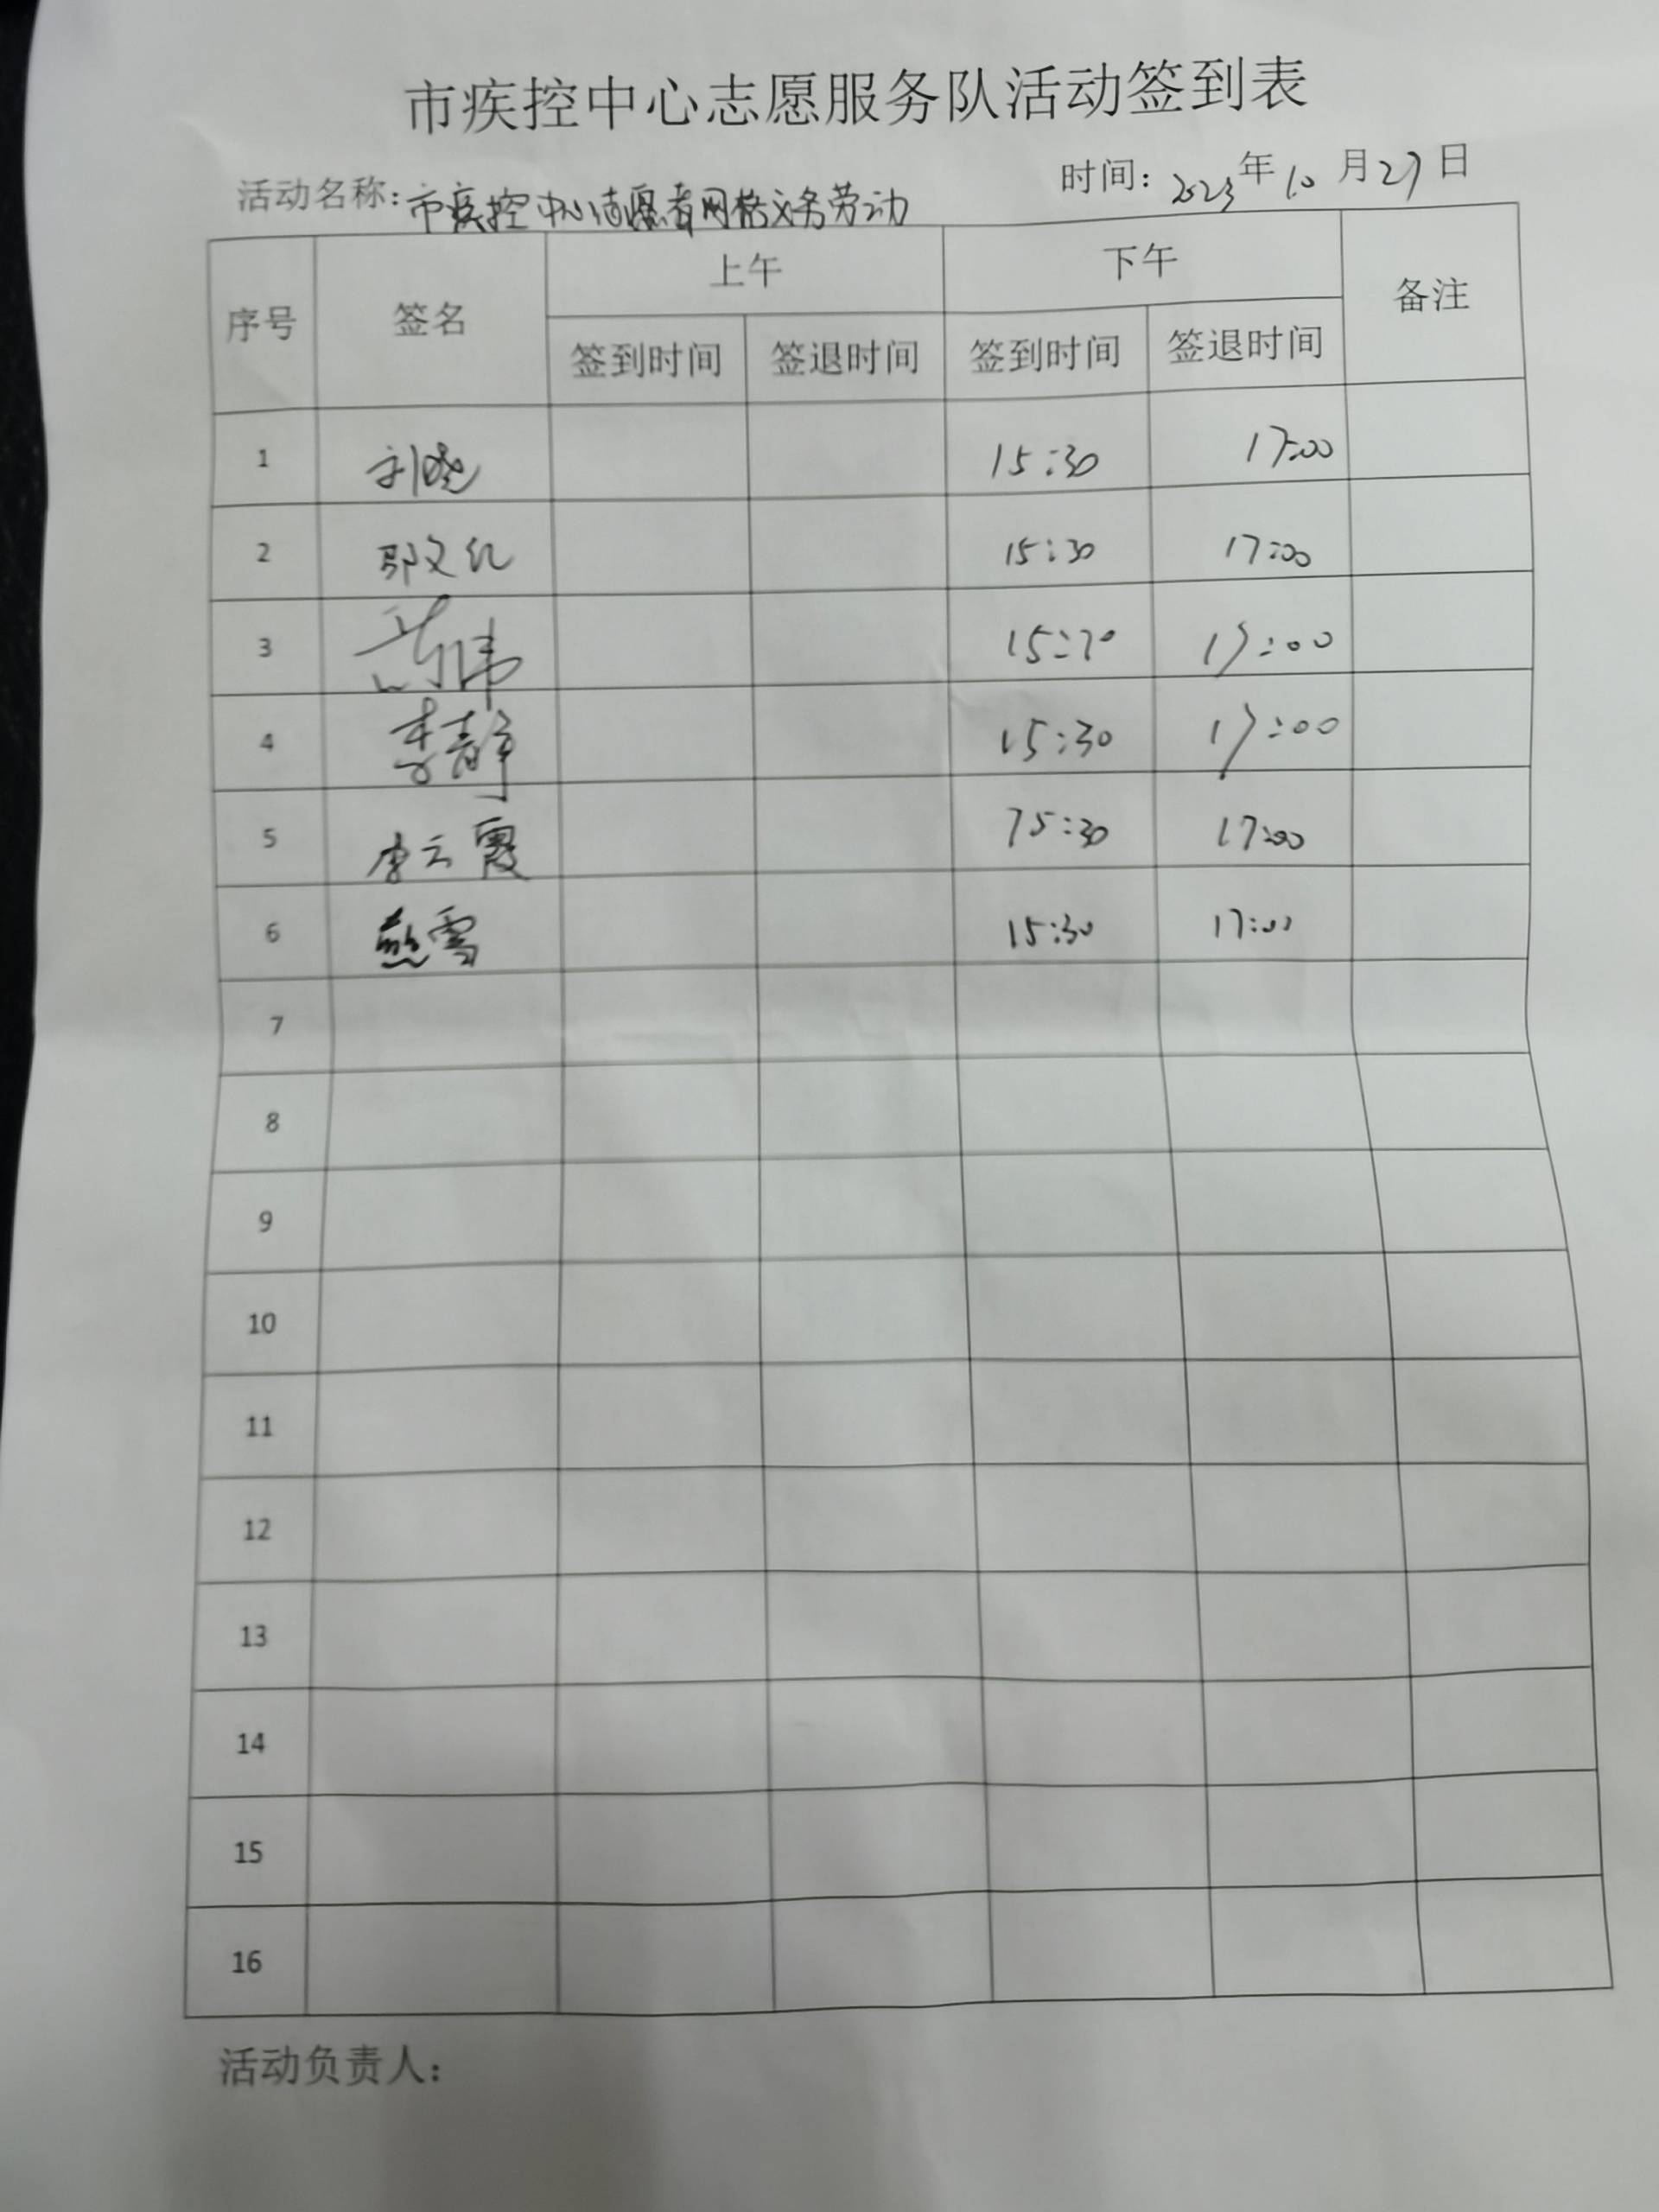 市疾控中心志愿服务队活动签到表
活动名称：市疾控中心志愿者网格义务劳动 时间：2023年10月27日
序号 签名 上午 下午 备注
签到时间 签退时间 签到时间 签退时间
1 刘晓 15:30 17:00
2 文红 15:30 17:00
3 伟 15:30 17:00
4 李静 15:30 17:00
5 李云霞 15:30 17:00
6 燕雪 15:30 17:00
7
8
9
10
11
12
13
14
15
16
活动负责人：